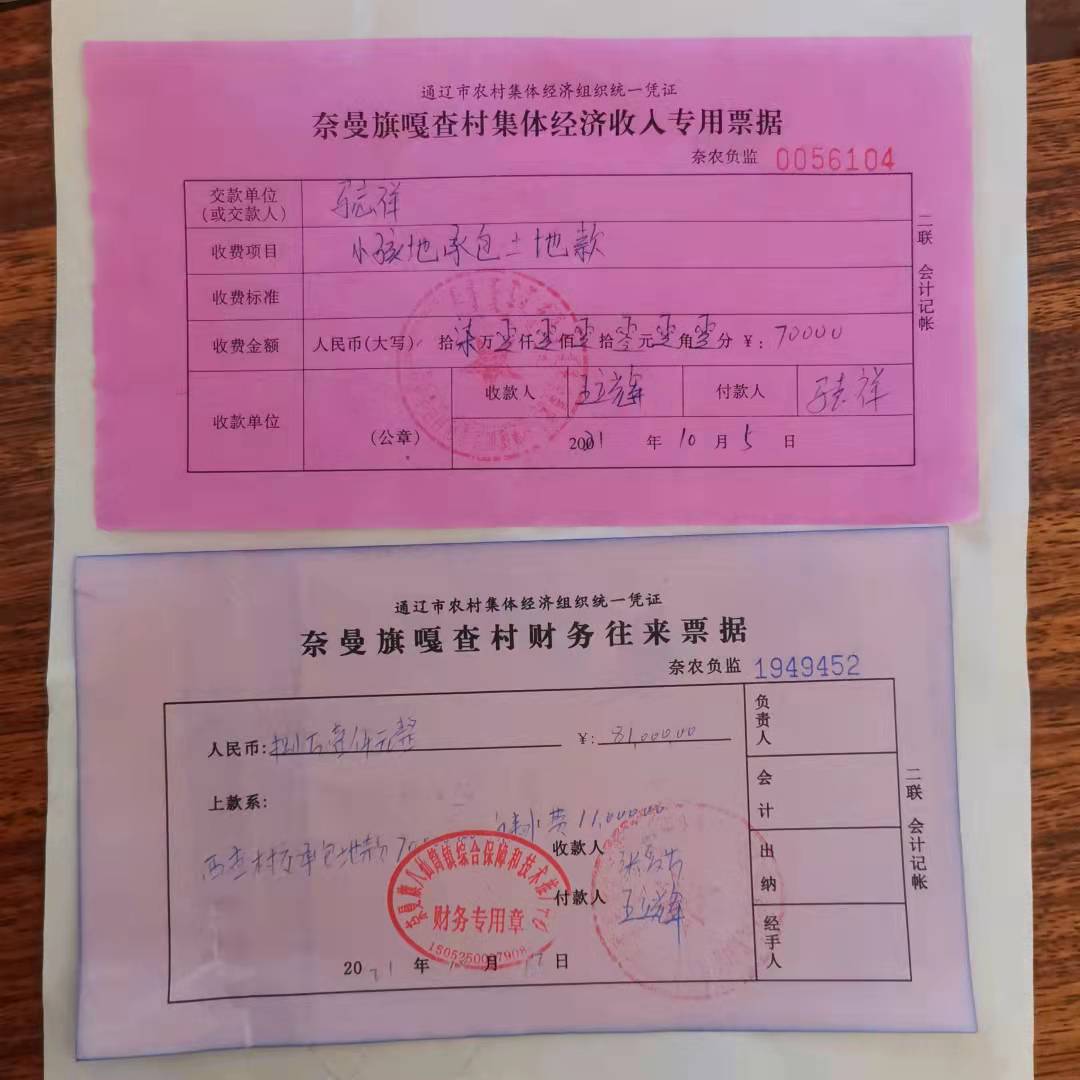 通辽市农村集体经济组织统一凭证
奈曼旗嘎查村集体经济收入专用票据
奈农负监 0056104
交款单位
(或交款人)
祥
收费项目 小孩地承包土地款
收费标准
收费金额 人民币(大写) 拾柒万零仟零佰零拾零元零角零分 ¥:70000
收款单位 (公章) 收款人 付款人 祥
2021 年 10 月 5 日
二联 会计记帐
通辽市农村集体经济组织统一凭证
奈曼旗嘎查村财务往来票据
奈农负监 1949452
人民币:捌万壹仟元整 ¥:81,000.00
上款系:
费 11,000.00
村 承包地款
收款人
付款人
2021 年 月 日
负责人
会计
出纳
经手人
二联 会计记帐
财务专用章